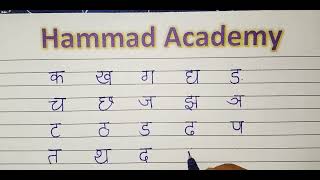 Hammad Academy
क ख ग घ ङ
च छ ज झ ञ
ट ठ ड ढ प
त थ द